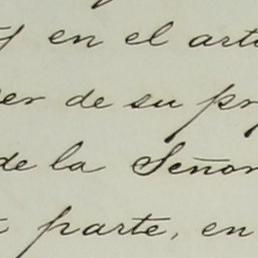 y en el art
er de su pr
de la Señor
parte, en